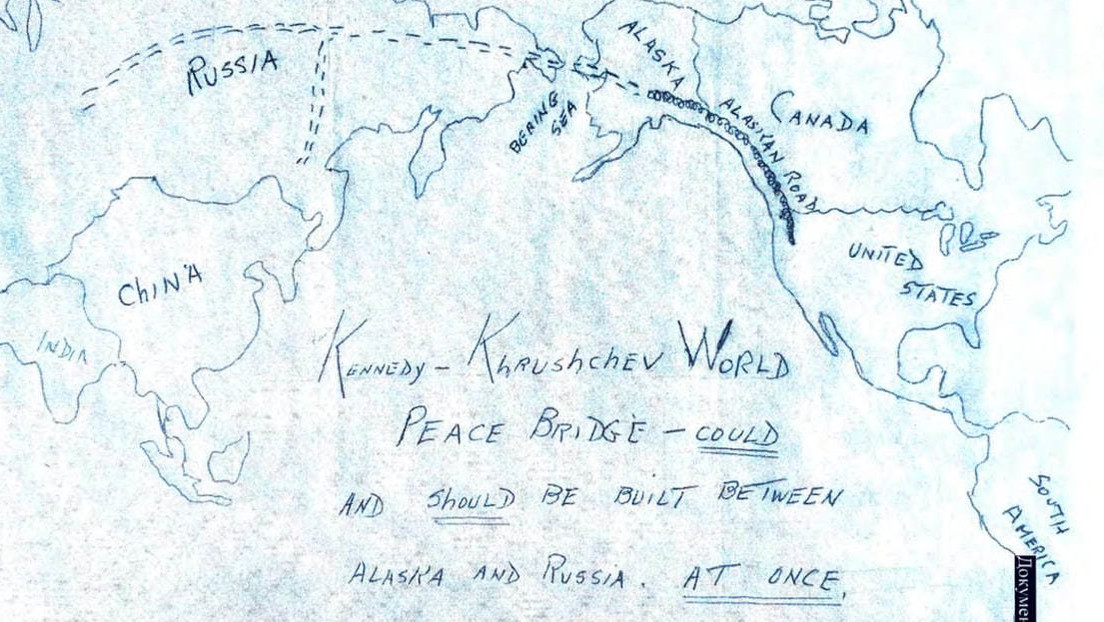 RUSSIA
ALASKA
ALASKAN ROAD
CANADA
BERING
SEA
UNITED
STATES
CHINA
INDIA
KENNEDY - KHRUSHCHEV WORLD
PEACE BRIDGE - COULD
AND SHOULD BE BUILT BETWEEN
ALASKA AND RUSSIA. AT ONCE.
SOUTH
AMERICA